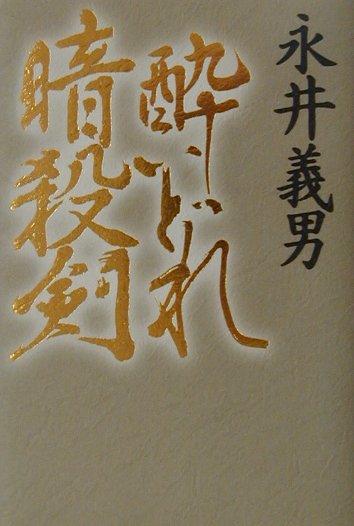 永井義男
酔いどれ
暗殺剣